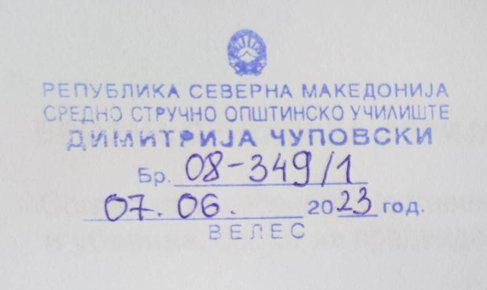 РЕПУБЛИКА СЕВЕРНА МАКЕДОНИЈА
СРЕДНО СТРУЧНО ОПШТИНСКО УЧИЛИШТЕ
ДИМИТРИЈА ЧУПОВСКИ
Бр. 08-349/1
07. 06. 2023 год.
ВЕЛЕС